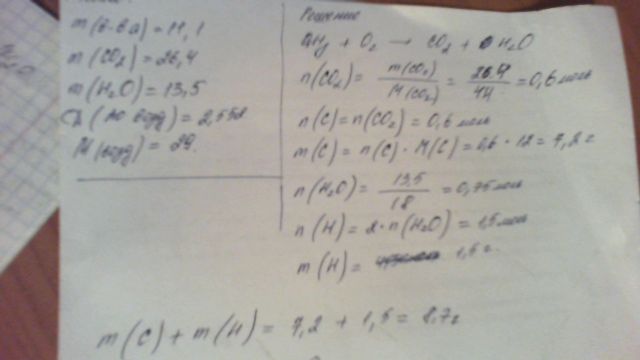 m(в-ва)=11,1
m(CO2)=26,4
m(H2O)=13,5
D(по возд)=2,552
M(возд)=29.
Решение
+ O2 → CO2 + H2O
n(CO2)= m(CO2) / M(CO2) = 26.4 / 44 =0,6 моль
n(C)=n(CO2)=0,6 моль
m(C)= n(C)·M(C)=0,6·12=7,2 г
n(H2O)= 13,5 / 18 =0,75 моль
n(H)=2·n(H2O)=1,5 моль
m(H)= 1,5 г.
m(C)+m(H)= 7,2 + 1,5 = 8,7 г